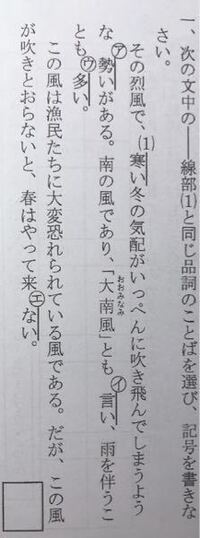 一、次の文中の――線部⑴と同じ品詞のことばを選び、記号を書きな
さい。
その烈風で、⑴寒い冬の気配がいっぺんに吹き飛んでしまうよう
な㋐勢いがある。南の風であり、「大南風」とも㋑言い、雨を伴うこ
おおみなみ
とも㋒多い。
この風は漁民たちに大変恐れられている風である。だが、この風
が吹きとおらないと、春はやって来㋓ない。